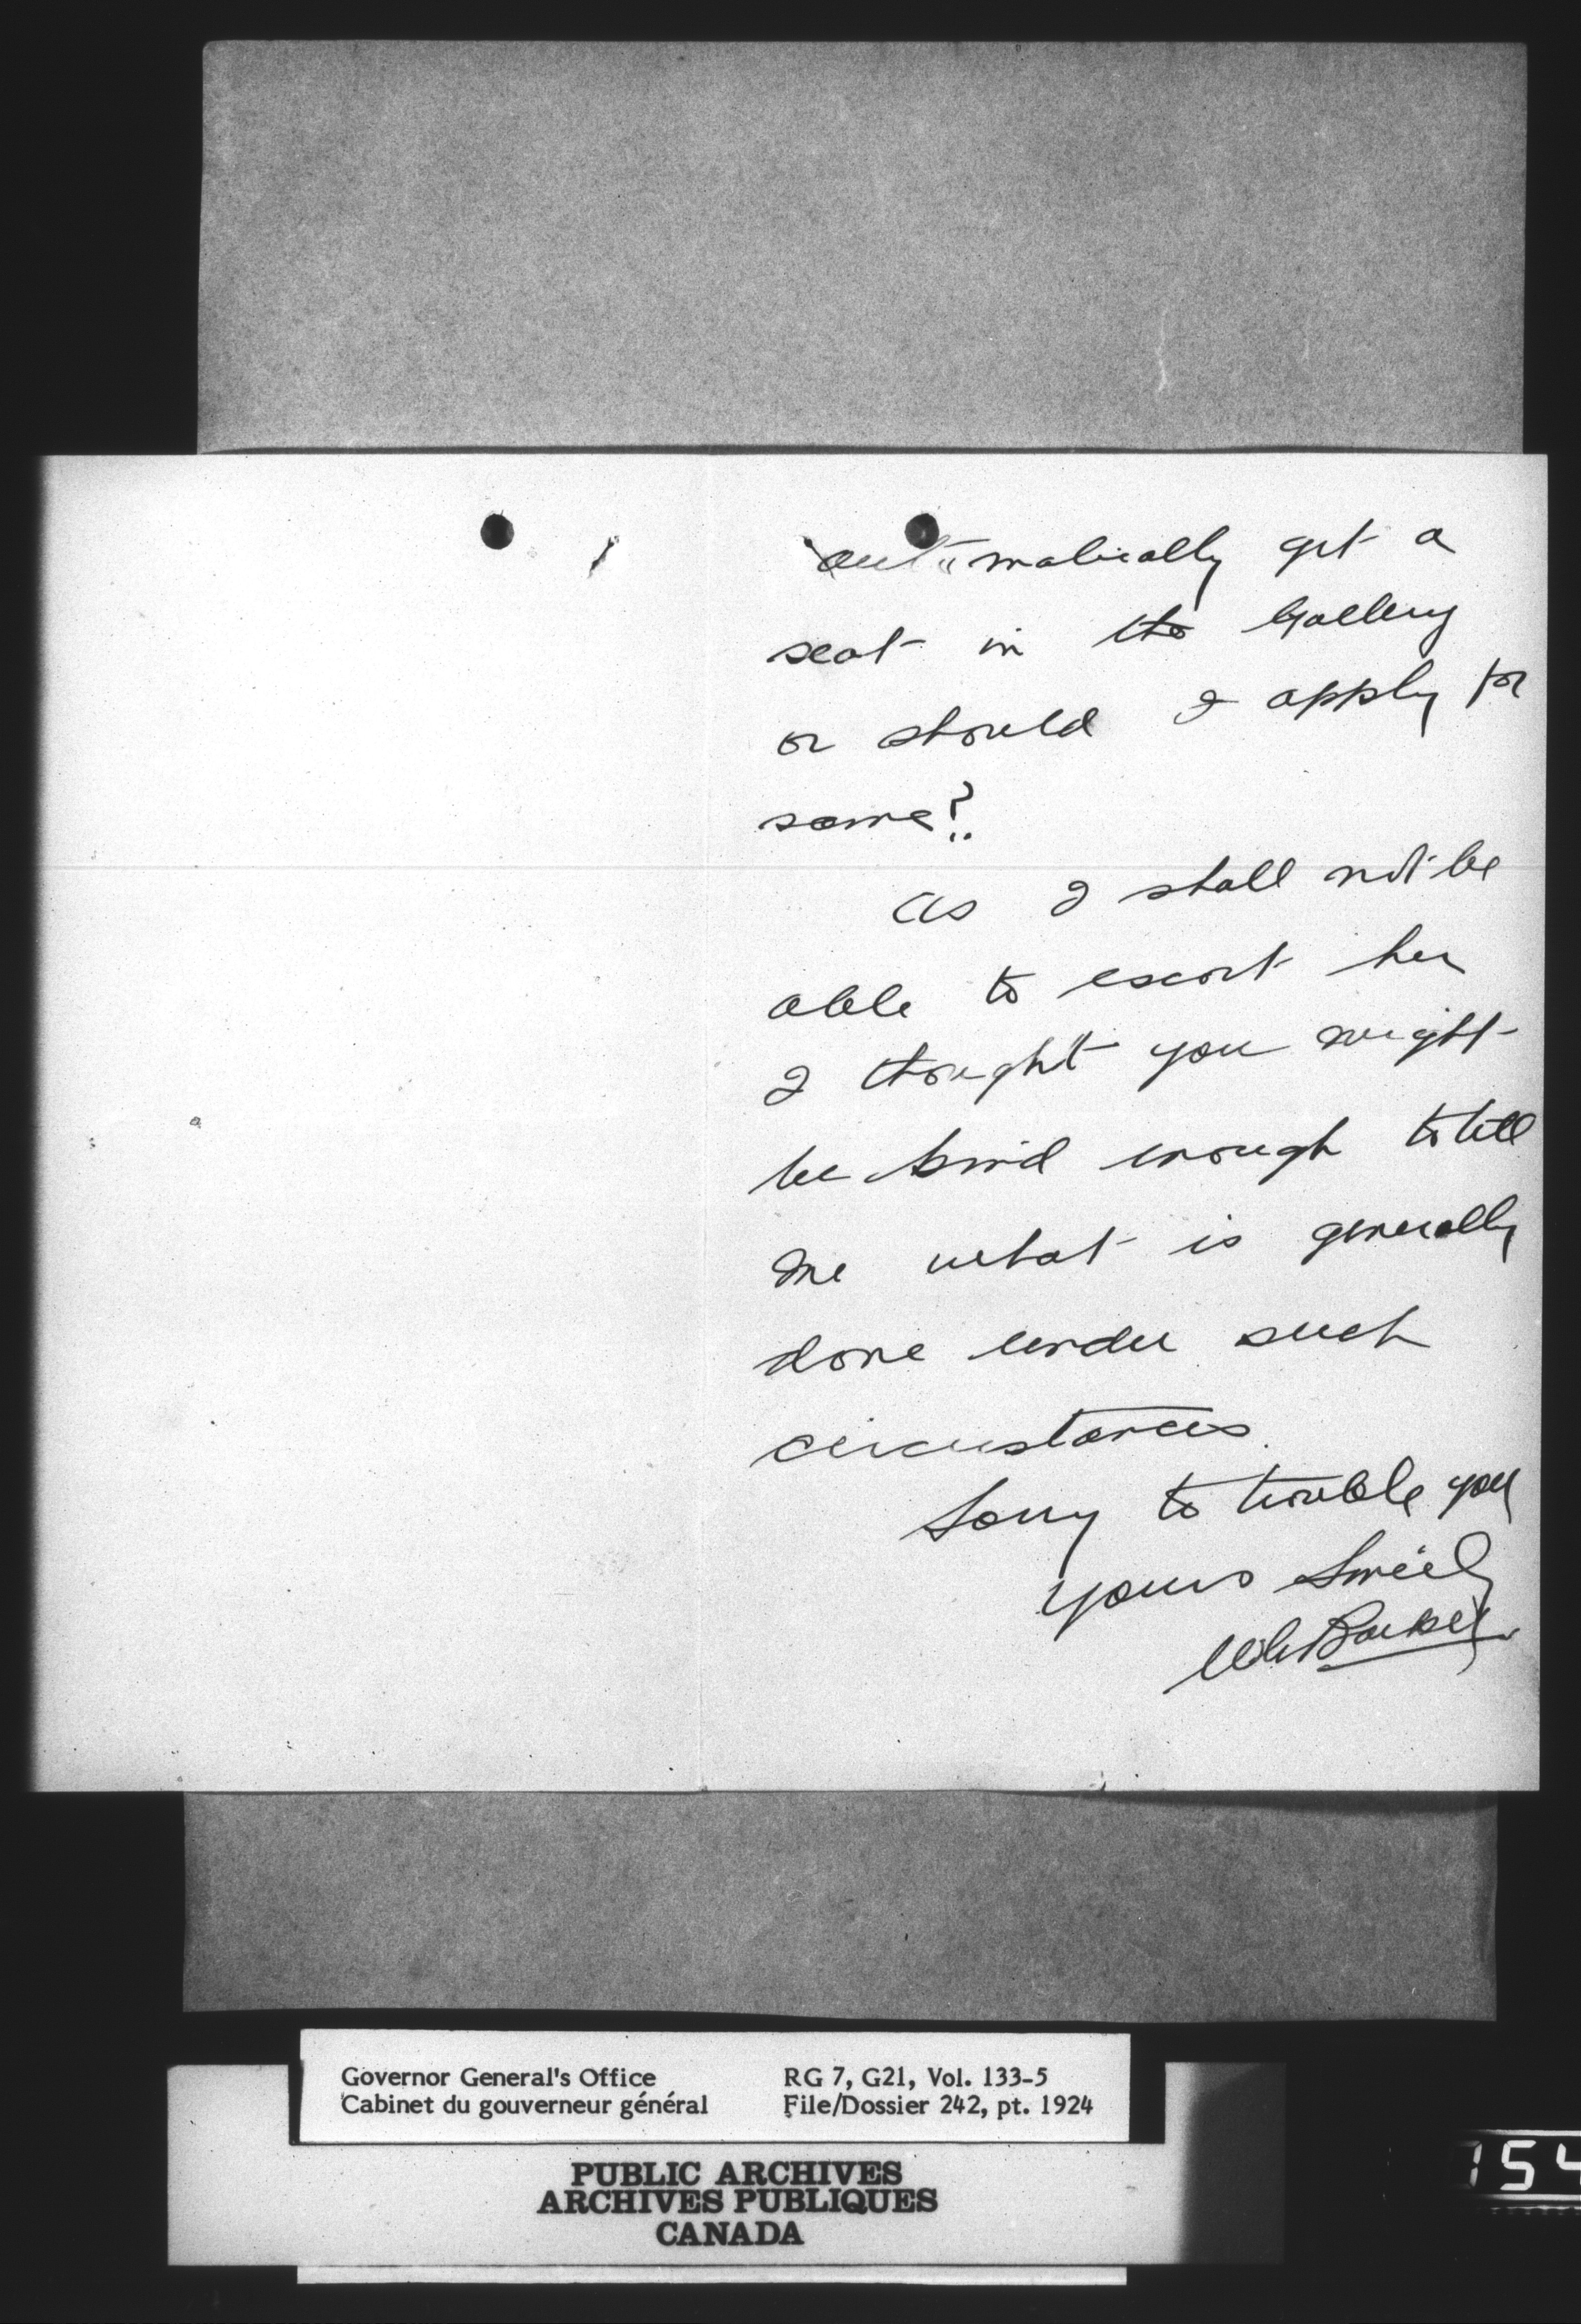 automatically get a
seat in the Gallery
or should I apply for
same?
As I shall not be
able to escort her
I thought you might
be kind enough to tell
me what is generally
done under such
circumstances.
Sorry to trouble you
Yours Sincely
Barker
Governor General's Office
Cabinet du gouverneur général
RG 7, G21, Vol. 133-5
File/Dossier 242, pt. 1924
PUBLIC ARCHIVES
ARCHIVES PUBLIQUES
CANADA
154